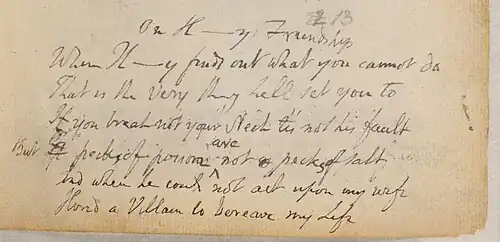 13
On H—ys Friendship
When H—y finds out what you cannot do
That is the very thing hell set you to
If you break not your Neck tis not his fault
But pecks of poison are not pecks of salt
And when he could not act upon my wife
Hired a Villain to bereave my Life